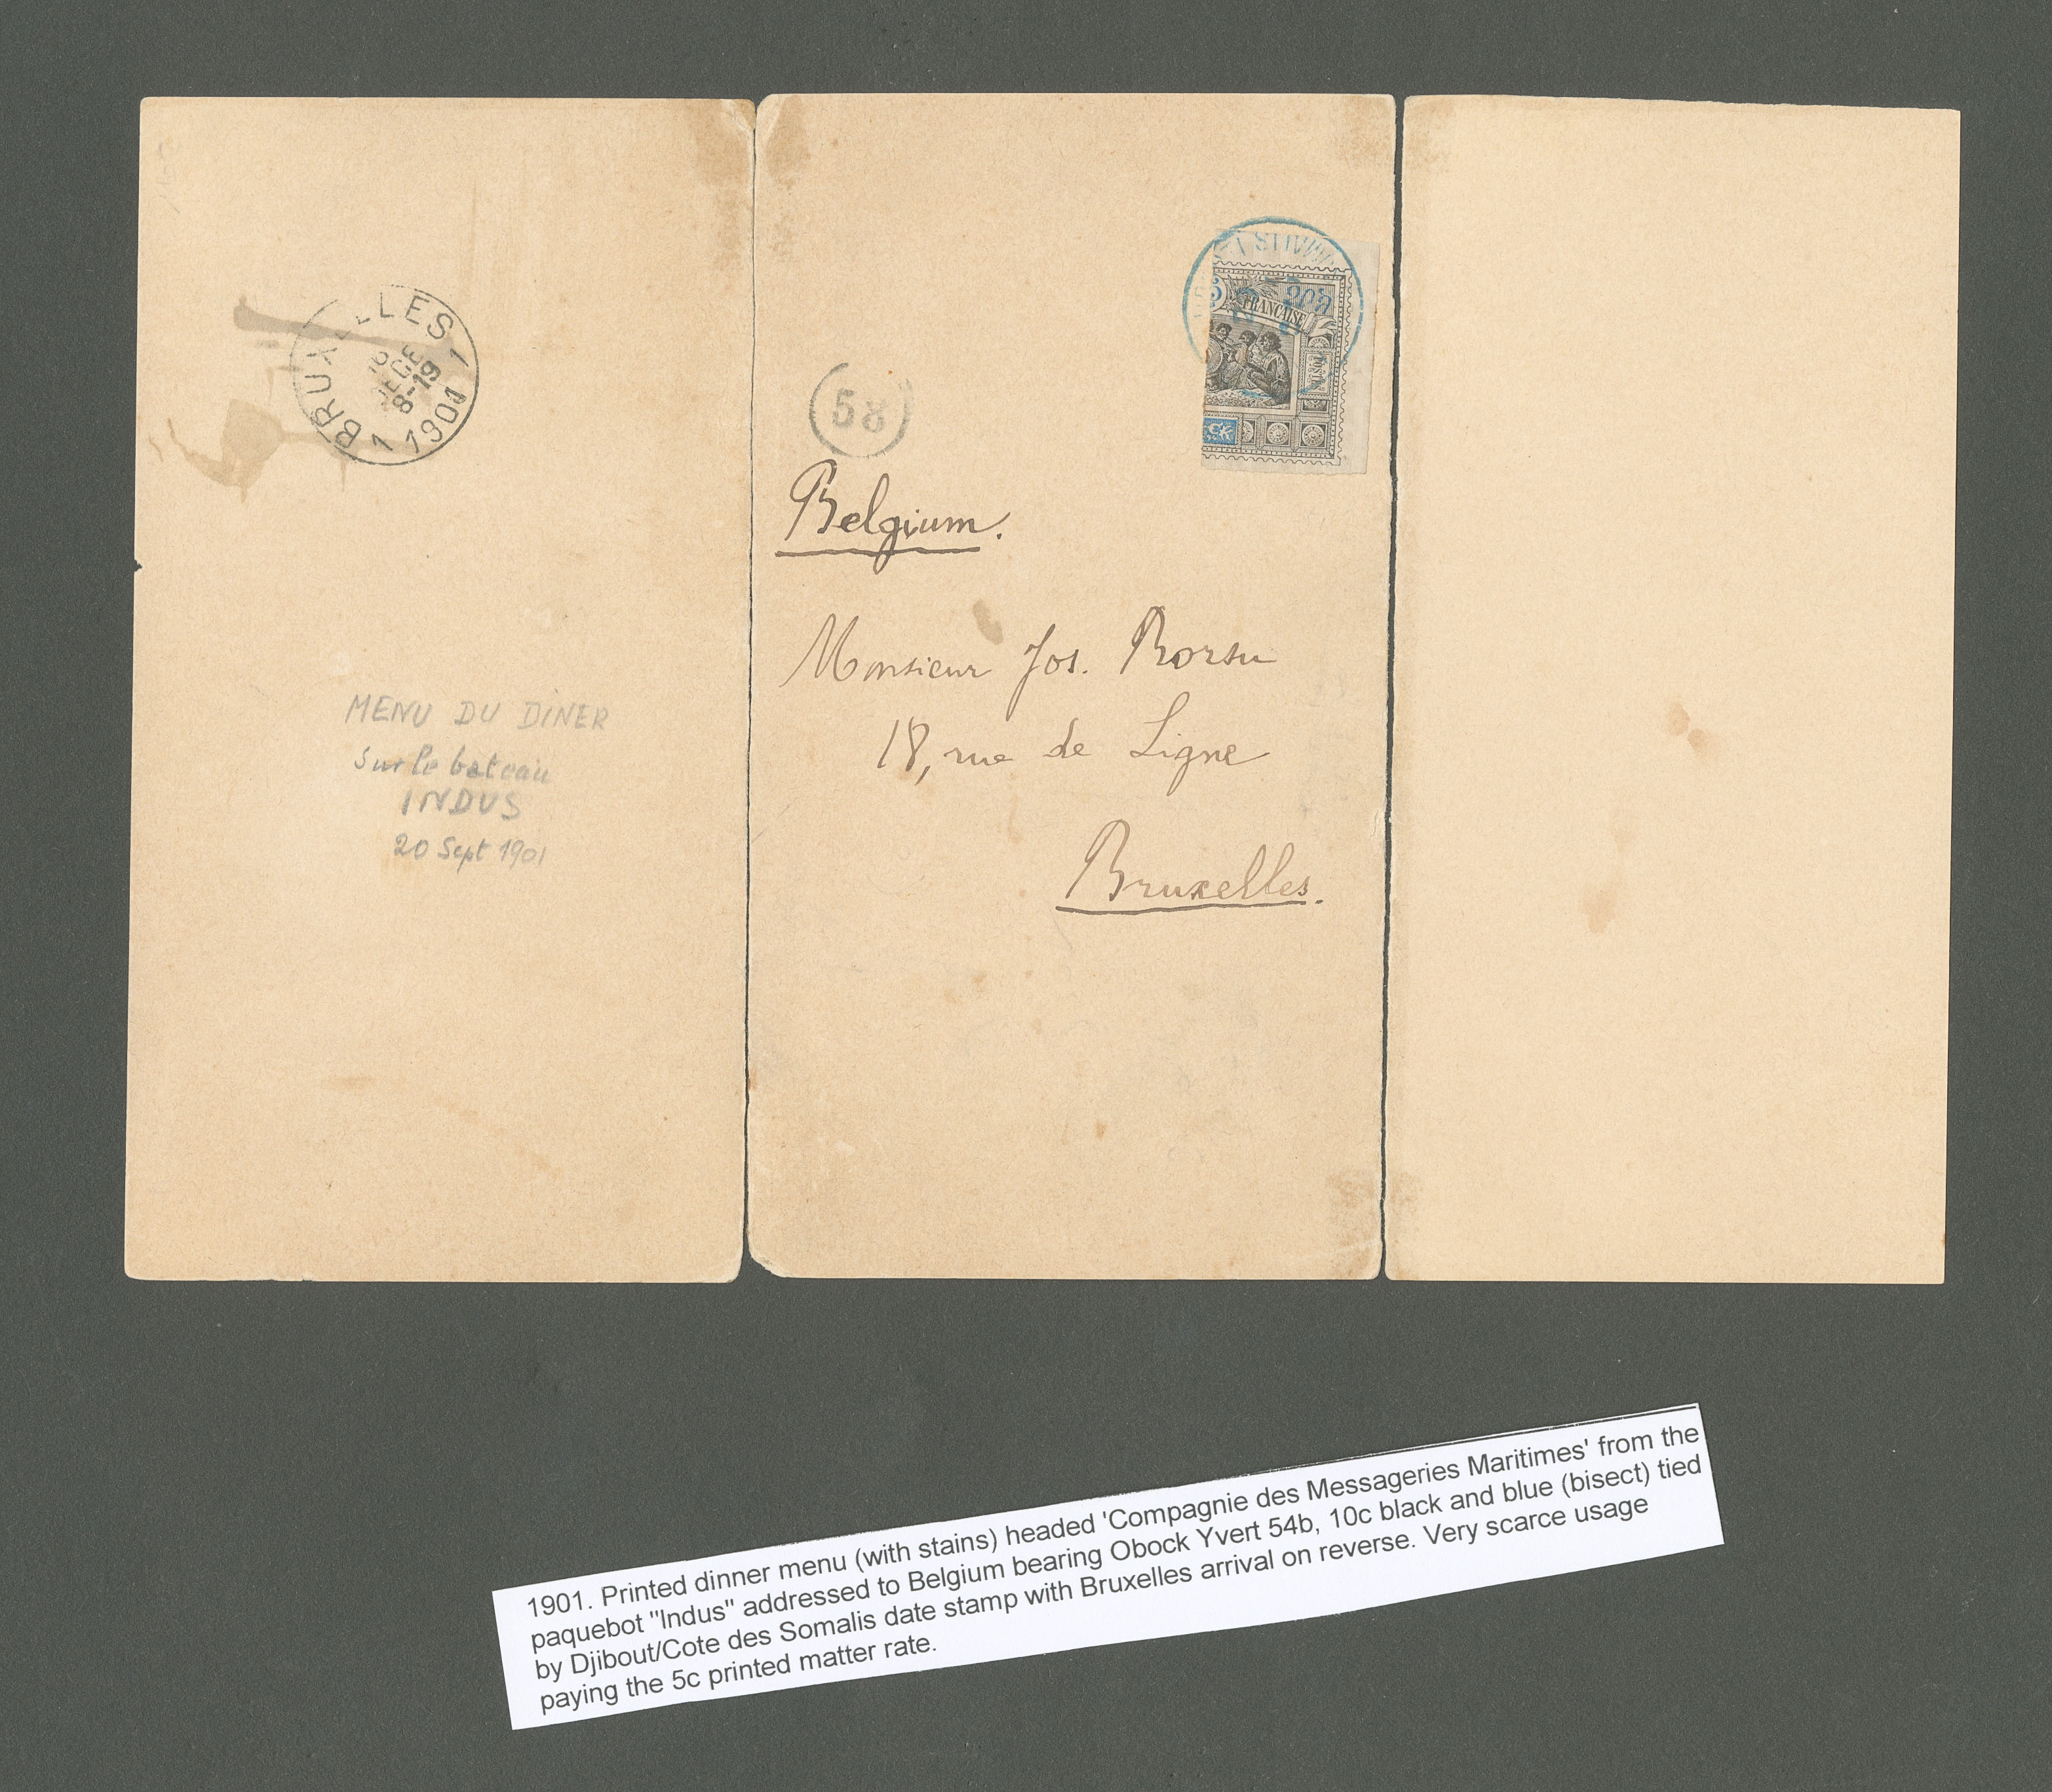 BRUXELLES
8-19
1 1901 1
MENU DU DINER
Sur le bateau
INDUS
20 Sept 1901
58
FRANÇAISE
POSTES
CK
Belgium.
Monsieur Jos. Borsu
18, rue de Ligne
Bruxelles.
1901. Printed dinner menu (with stains) headed 'Compagnie des Messageries Maritimes' from the
paquebot "Indus" addressed to Belgium bearing Obock Yvert 54b, 10c black and blue (bisect) tied
by Djibout/Cote des Somalis date stamp with Bruxelles arrival on reverse. Very scarce usage
paying the 5c printed matter rate.